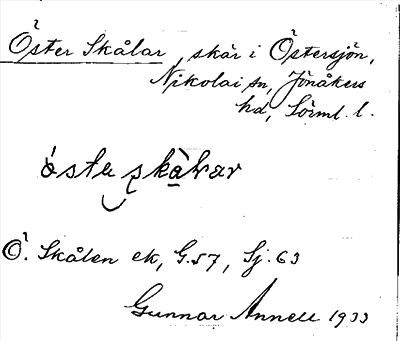 Öster Skålar, skär i Östersjön,
Nikolai sn, Jönåkers
hd, Sörml. l.
östa skàlar
Ö. Skålen ek, G.57, Sj.63
Gunnar Annell 1933